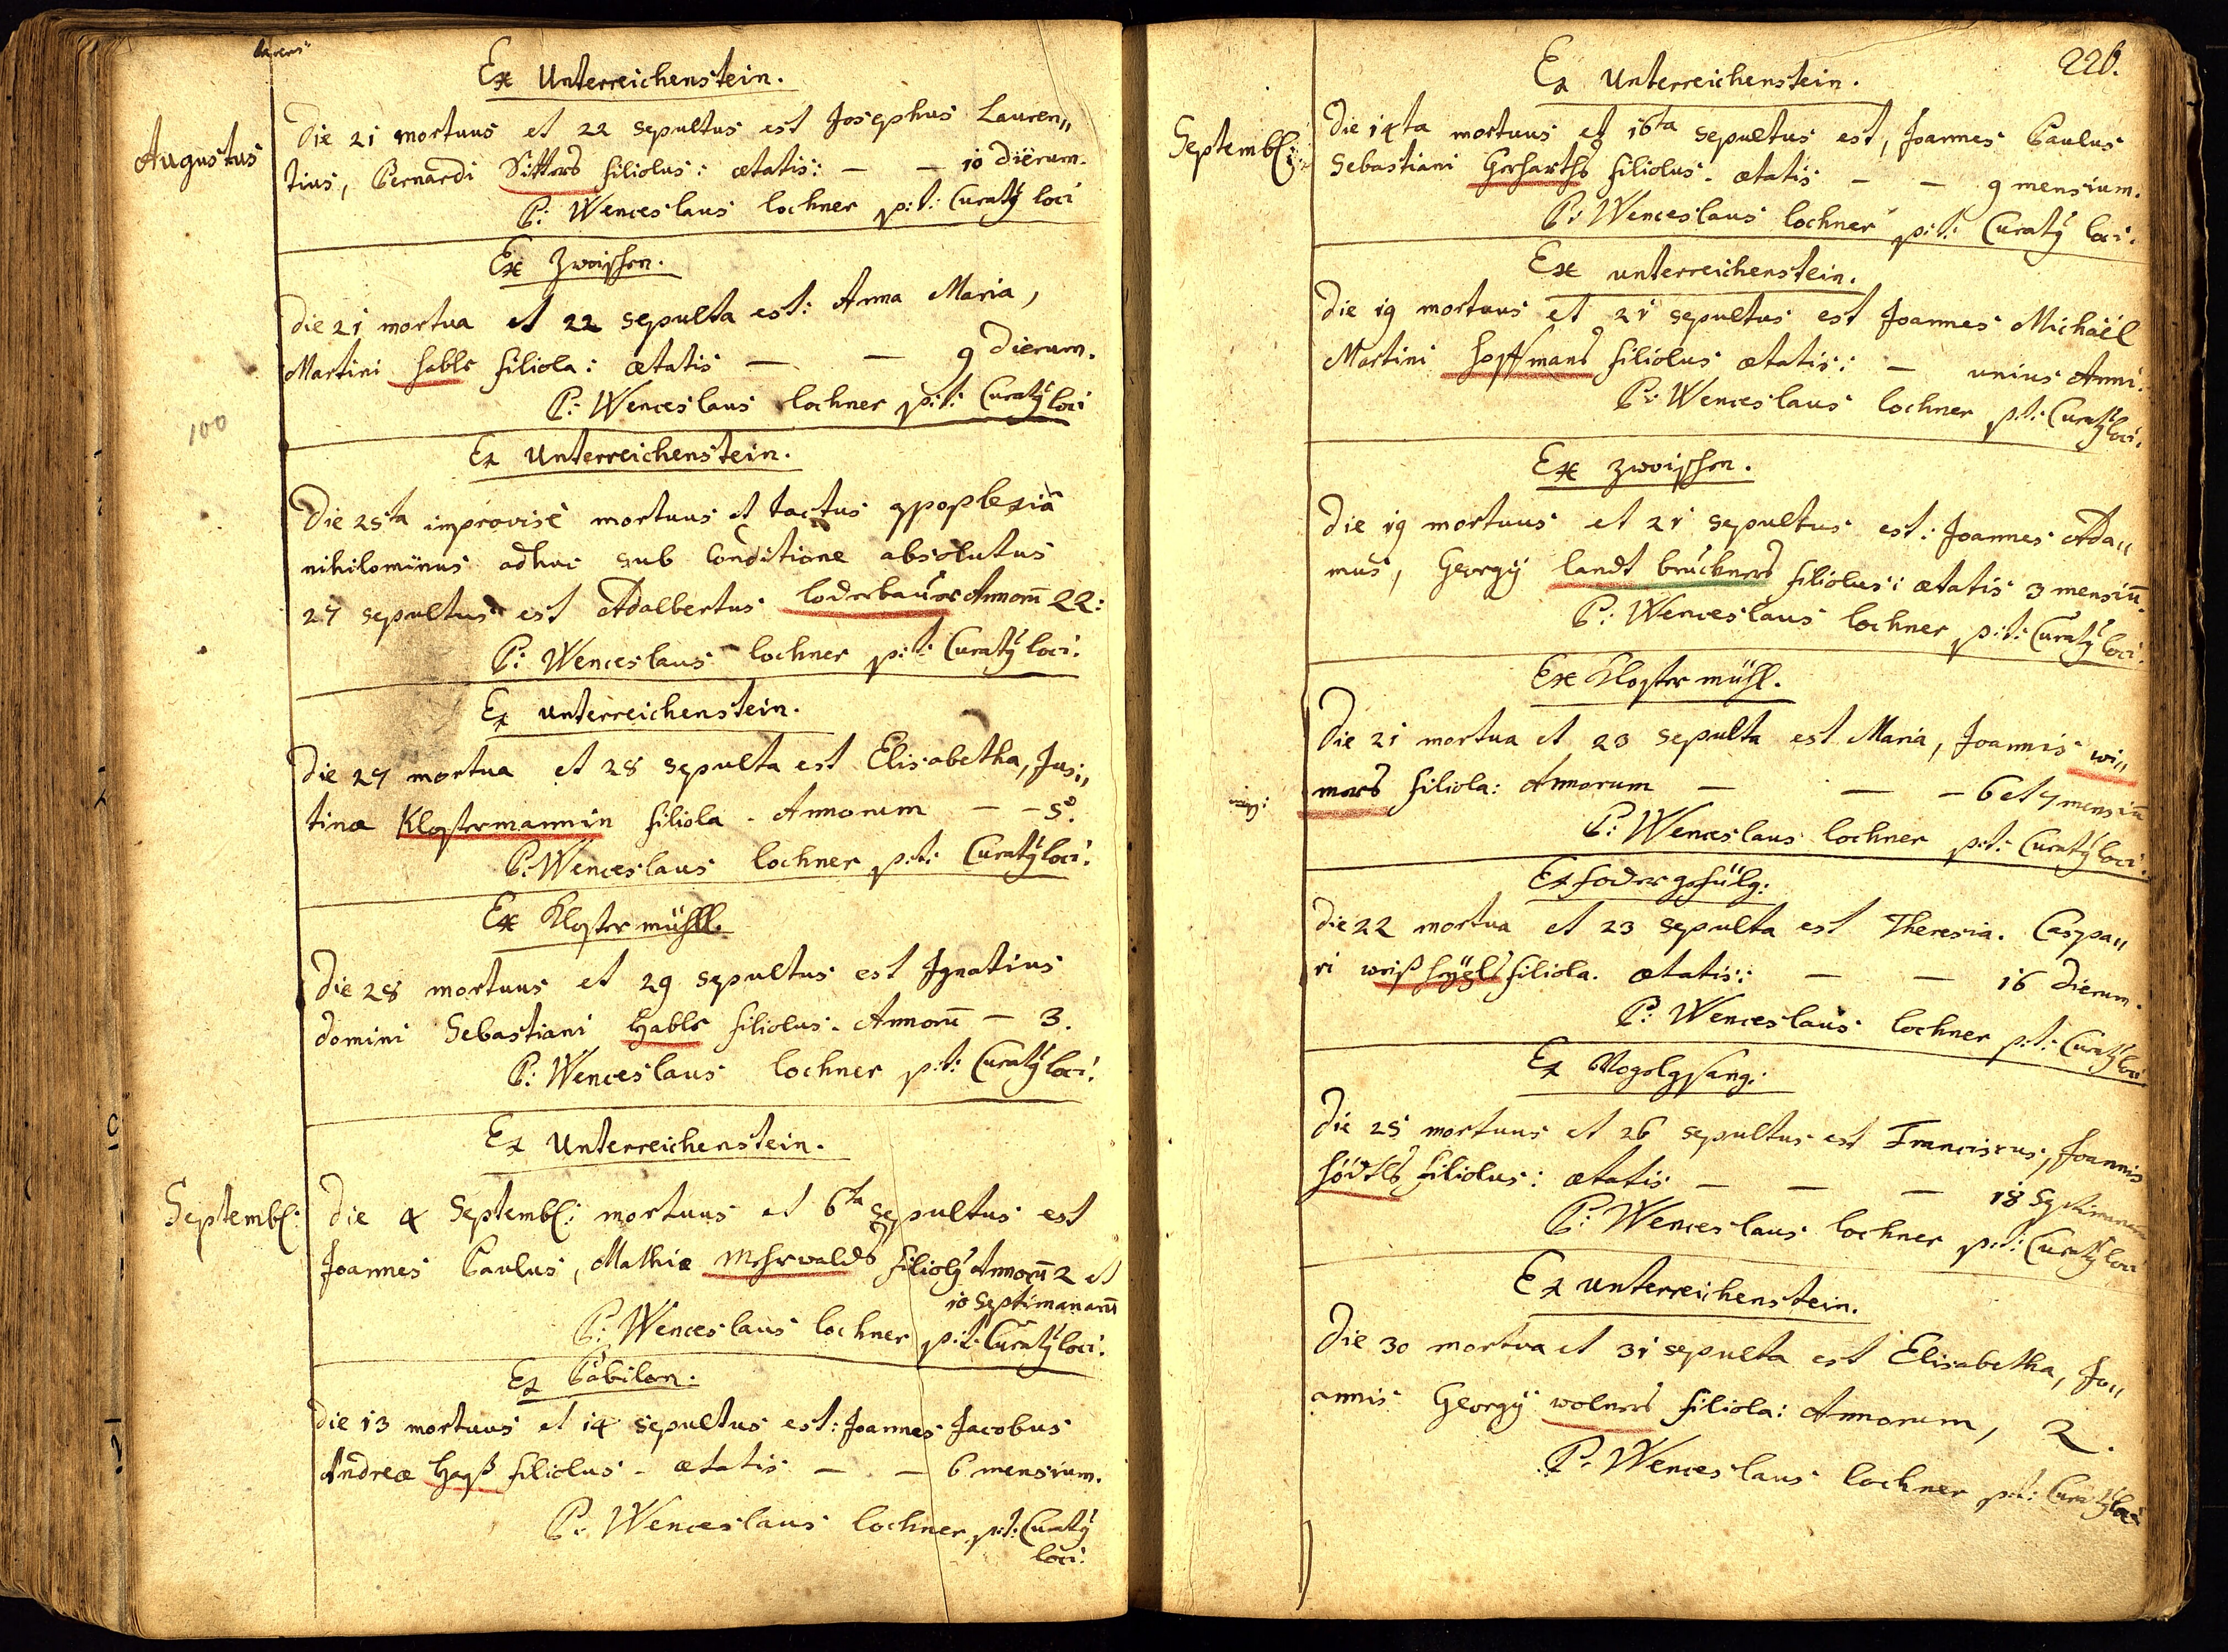 Ex Unterreichenstein.
Augustus
Die 21 mortuus et 22 sepultus est Josephus Lauren„
tius, Bernardi Sitters filiolus: ætatis: — — 10 dierum.
P: Wenceslaus lochner p:t: Curatȝ loci
Ex Zwoischen.
Die 21 mortua et 22 sepulta est: Anna Maria,
Martini hable filiola: ætatis — — 9 dierum.
P: Wenceslaus lochner p:t: Curatȝ loci
100
Ex Unterreichenstein.
Die 25ta improvisè mortuus et tactus apoplexiâ
nihilominus adhuc sub Conditione absolutus
27 sepultus est Adalbertus loderbauer Annorũ 22:
P: Wenceslaus lochner p:t: Curatȝ loci.
Ex unterreichenstein.
Die 27 mortua et 28 sepulta est Elisabetha, Jus„
tinæ Klostermannin filiola. Annorum — — 5.
P: Wenceslaus lochner p:t: Curatȝ loci.
Ex Kloster mühll.
Die 28 mortuus et 29 sepultus est Ignatius
domini Sebastiani Hable filiolus. Annorũ — 3.
P: Wenceslaus lochner p:t: Curatȝ loci.
Ex Unterreichenstein.
Septemb:
Die 4 Septemb: mortuus et 6ta sepultus est
Joannes Paulus, Mathiæ Mehrwalds filiolȝ Annorũ 2 et
10 Septimanarũ
P: Wenceslaus lochner p:t: Curatȝ loci.
Ex Babilon.
Die 13 mortuus et 14 sepultus est: Joannes Jacobus
Andreæ Hasß filiolus. ætatis — — 6 mensium.
P: Wenceslaus lochner p:t: Curatȝ
loci.
226.
Ex Unterreichenstein.
Septemb:
Die 14ta mortuus et 16ta sepultus est, Joannes Paulus
Sebastiani Gerharths filiolus. ætatis — — 9 mensium.
P: Wenceslaus lochner p:t: Curatȝ loci.
Ex unterreichenstein.
Die 19 mortuus et 21 sepultus est Joannes Michaël
Martini hoffmans filiolus ætatis: — unius Anni.
P: Wenceslaus lochner p:t: Curatȝ loci.
Ex zwoischen.
Die 19 mortuus et 21 sepultus est: Joannes Ada„
mus, Georgÿ landt bruckners filiolus: ætatis 3 mensiũ.
P: Wenceslaus lochner p:t: Curatȝ loci.
Ex Kloster mühl.
Die 21 mortua et 23 sepulta est Maria, Joannis wi„
mers filiola: Annorum — — — 6 et 7 mensiũ
P: Wenceslaus lochner p:t: Curatȝ loci.
Ex
Die 22 mortua et 23 sepulta est Theresia. Caspa„
ri filiola. ætatis: — — 16 dierum.
P: Wenceslaus lochner p:t: Curatȝ loci
Ex Vogelgsang.
Die 25 mortuus et 26 sepultus est Franciscus, Joannis
hödtls filiolus: ætatis — — — 18 Septimanarũ
P: Wenceslaus lochner p:t: Curatȝ loci
Ex unterreichenstein.
Die 30 mortua et 31 sepulta est Elisabetha, Jo„
annis Georgÿ wolners filiola: Annorum, 2.
P: Wenceslaus lochner p:t: Curatȝ loci